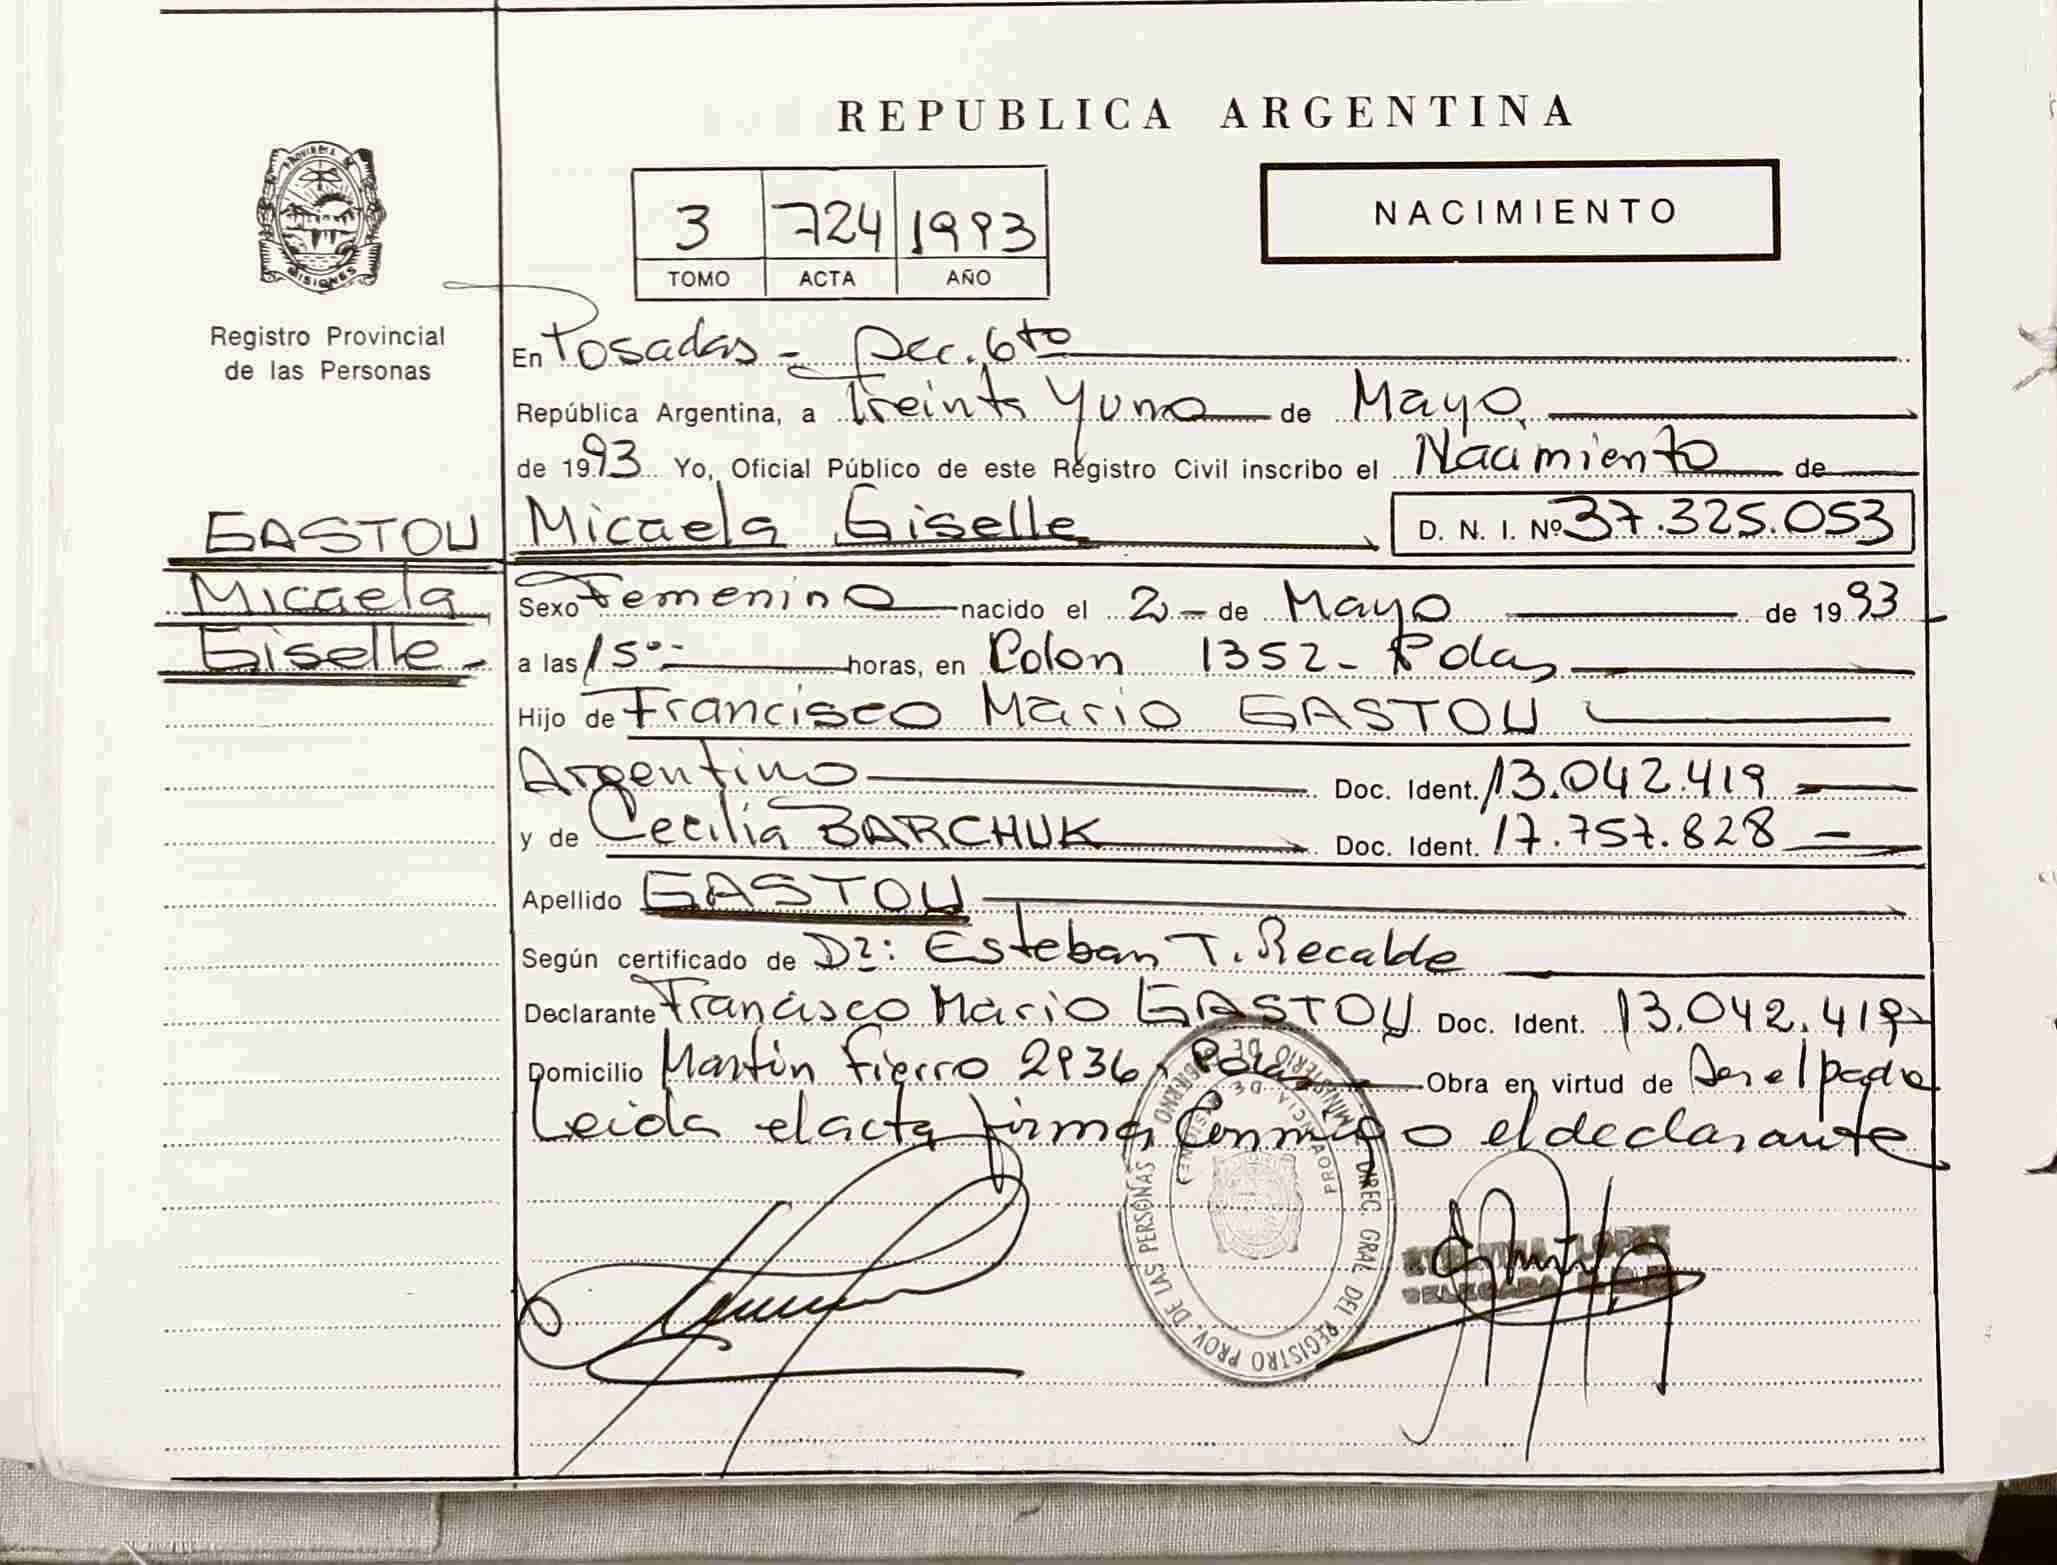 REPUBLICA ARGENTINA
PROVINCIA DE MISIONES
Registro Provincial
de las Personas
3 724 1993
TOMO ACTA AÑO
NACIMIENTO
En Posadas - Sec. 6to
República Argentina, a Treinta y uno de Mayo
de 1993 Yo, Oficial Público de este Registro Civil inscribo el Nacimiento de
GASTOU
Micaela
Giselle
Micaela Giselle D. N. I. Nº 37.325.053
Sexo Femenino nacido el 2 - de Mayo de 1993
a las 15⁰⁰ horas, en Colon 1352 - Pdas
Hijo de Francisco Mario GASTOU
Argentino Doc. Ident. 13.042.419
y de Cecilia BARCHUK Doc. Ident. 17.757.828
Apellido GASTOU
Según certificado de Dr: Esteban T. Recalde
Declarante Francisco Mario GASTOU Doc. Ident. 13.042.419
Domicilio Martin Fierro 2936, Pdas Obra en virtud de Ser el padre
Leida el acta firma Conmigo el declarante
MINISTERIO DE GOBIERNO
DIREC. GRAL. DEL REGISTRO PROV. DE LAS PERSONAS
PROVINCIA DE MISIONES
LOPEZ
DELEGADA